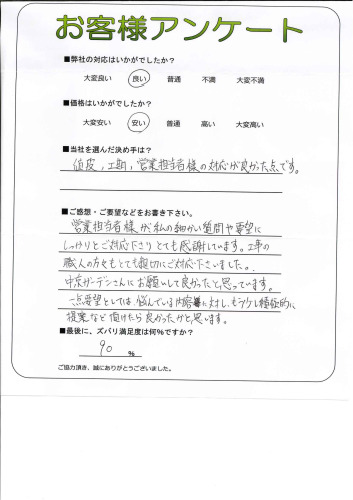 お客様アンケート
■弊社の対応はいかがでしたか?
大変良い 良い 普通 不満 大変不満
■価格はいかがでしたか?
大変安い 安い 普通 高い 大変高い
■当社を選んだ決め手は?
価度、工期、営業担当者様の対応が良かった点です。
■ご感想・ご要望などをお書き下さい。
営業担当者様が私の細かい質問や要望に
しっかりとご対応下さりとても感謝しています。工事の
職人の方々もとても親切にご対応下さいました。
中京ガーデンさんにお願いして良かったと思っています。
一点要望としては、悩んでいる内容に対し、もう少し積極的に
提案など頂けたら良かったかと思います。
■最後に、ズバリ満足度は何%ですか?
90 %
ご協力頂き、誠にありがとうございました。